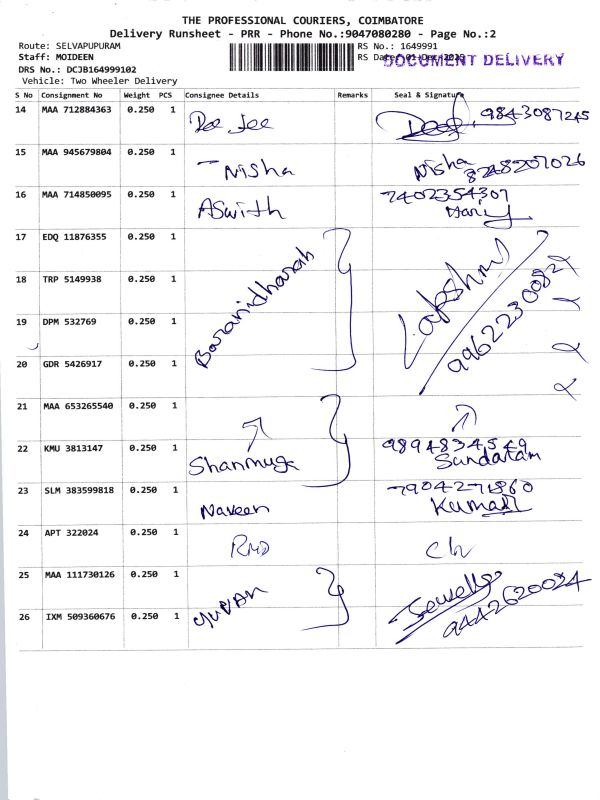 THE PROFESSIONAL COURIERS, COIMBATORE
Delivery Runsheet - PRR - Phone No.:9047080280 - Page No.:2
Route: SELVAPUPURAM RS No.: 1649991
Staff: MOIDEEN RS Date: DOCUMENT DELIVERY
DRS No.: DCJB164999102
Vehicle: Two Wheeler Delivery
S No Consignment No Weight PCS Consignee Details Remarks Seal & Signature
14 MAA 712884363 0.250 1 Dee Jee 9843087245
15 MAA 945679804 0.250 1 Nisha Nisha 8248207026
16 MAA 714850095 0.250 1 ASwith 7402354307
17 EDQ 11876355 0.250 1
18 TRP 5149938 0.250 1 Baranidharan Lakshmi
19 DPM 532769 0.250 1
20 GDR 5426917 0.250 1
21 MAA 653265540 0.250 1
22 KMU 3813147 0.250 1 Shanmuga 9894834549 Sundaram
23 SLM 383599818 0.250 1 Naveen 7904271860 Kumar
24 APT 322024 0.250 1
25 MAA 111730126 0.250 1
26 IXM 509360676 0.250 1 9442620024